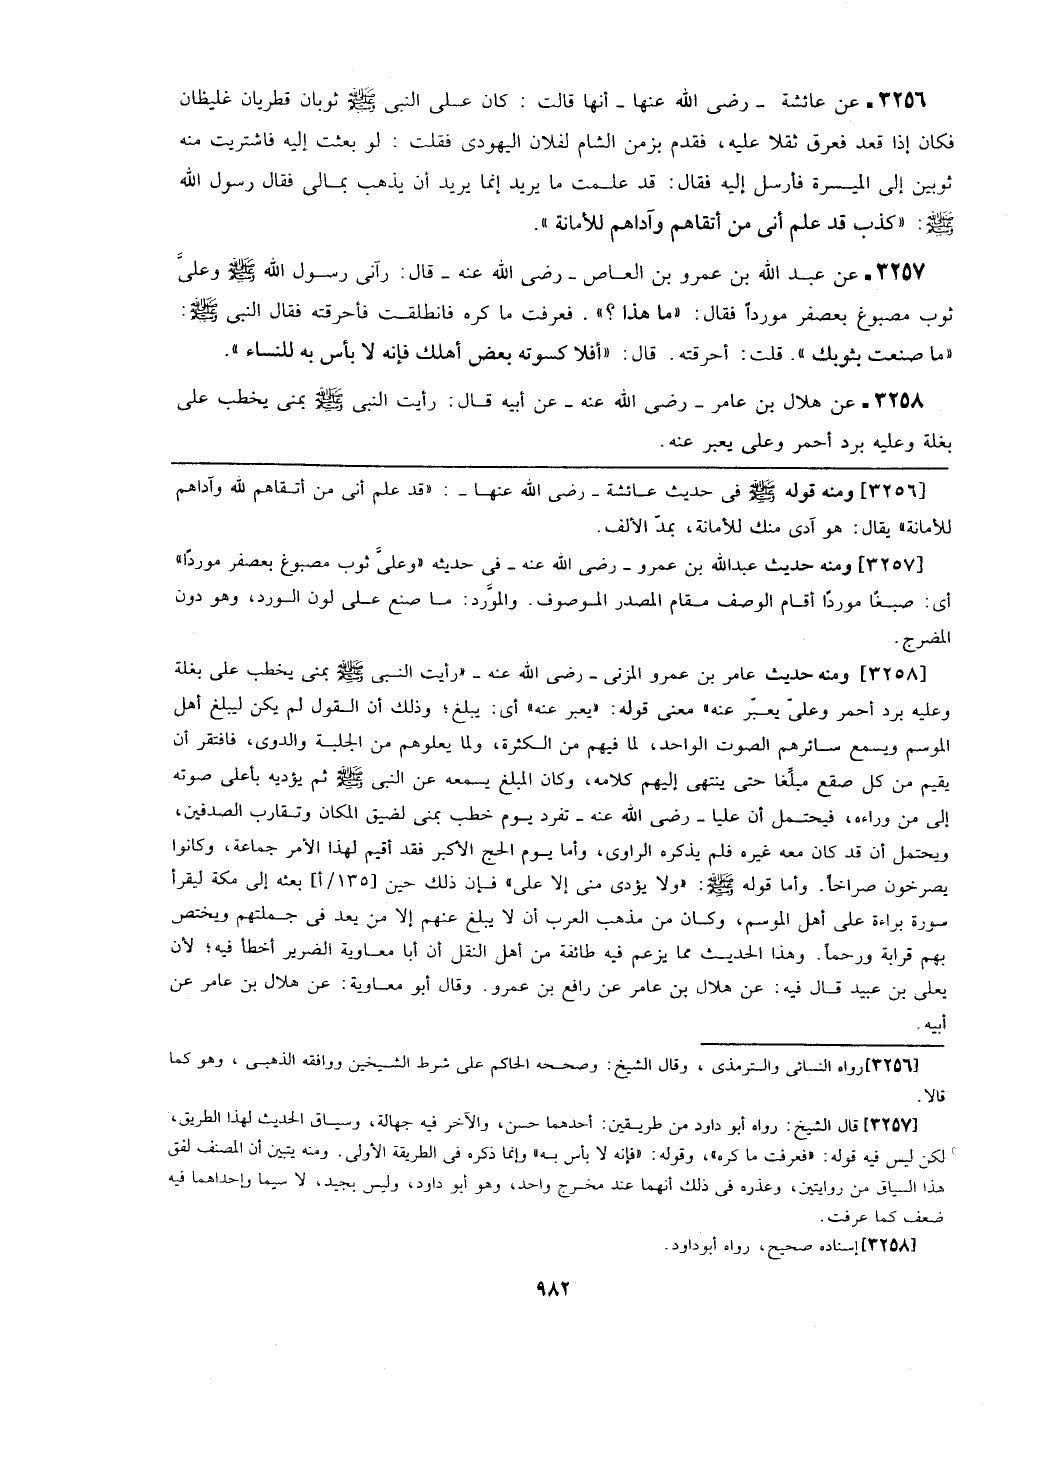 ٣٢٥٦ـ عن عائشة ـ رضى الله عنها ـ أنها قالت : كان عـلى النبى ﷺ ثوبان قطريان غليظان
فكان إذا قعد فعرق ثقلا عليه، فقدم بزمن الشام لفلان اليهودى فقلت : لو بعثت إليه فاشتريت منه
ثوبين إلى الميسرة فأرسل إليه فقال: قد علمت ما يريد إنما يريد أن يذهب بمالى فقال رسول الله
ﷺ: «كذب قد علم أنى من أتقاهم وآداهم للأمانة ».
٣٢٥٧ـ عن عبد الله بن عمرو بن العاص ـ رضى الله عنه ـ قال: رآنى رسول الله ﷺ وعلىَّ
ثوب مصبوغ بعصفر مورداً فقال: «ما هذا ؟» . فعرفت ما كره فانطلقت فأحرقته فقال النبى ﷺ:
«ما صنعت بثوبك ». قلت: أحرقته. قال: «أفلا كسوته بعض أهلك فإنه لا بأس به للنساء ».
٣٢٥٨ـ عن هلال بن عامر ـ رضى الله عنه ـ عن أبيه قال: رأيت النبى ﷺ بمنى يخطب على
بغلة وعليه برد أحمر وعلى يعبر عنه.
[٣٢٥٦] ومنه قوله ﷺ فى حديث عائشة ـ رضى الله عنها ـ : «قد علم أنى من أتقاهم لله وآداهم
للأمانة» يقال: هو آدى منك للأمانة، بمدّ الألف.
[٣٢٥٧] ومنه حديث عبدالله بن عمرو ـ رضى الله عنه ـ فى حديثه «وعلىَّ ثوب مصبوغ بعصفر موردًا»
أى: صبغًا موردًا أقام الوصف مقام المصدر الموصوف. والمورَّد: ما صنع على لون الورد، وهو دون
المضرج.
[٣٢٥٨] ومنه حديث عامر بن عمرو المزنى ـ رضى الله عنه ـ «رأيت النبى ﷺ بمنى يخطب على بغلة
وعليه برد أحمر وعلىّ يعبّر عنه» معنى قوله: «يعبر عنه» أى: يبلغ؛ وذلك أن القول لم يكن ليبلغ أهل
الموسم ويسمع سائرهم الصوت الواحد، لما فيهم من الكثرة، ولما يعلوهم من الجلبة والدوى، فافتقر أن
يقيم من كل صقع مبلِّغا حتى ينتهى إليهم كلامه، وكان المبلغ يسمعه عن النبى ﷺ ثم يؤديه بأعلى صوته
إلى من وراءه، فيحتمل أن عليا ـ رضى الله عنه ـ تفرد يوم خطب بمنى لضيق المكان وتقارب الصدفين،
ويحتمل أن قد كان معه غيره فلم يذكره الراوى، وأما يوم الحج الأكبر فقد أقيم لهذا الأمر جماعة، وكانوا
يصرخون صراخاً. وأما قوله ﷺ: «ولا يؤدى منى إلا على» فإن ذلك حين [١٣٥/أ] بعثه إلى مكة ليقرأ
سورة براءة على أهل الموسم، وكان من مذهب العرب أن لا يبلغ عنهم إلا من يعد فى جملتهم ويختص
بهم قرابة ورحماً. وهذا الحديث مما يزعم فيه طائفة من أهل النقل أن أبا معاوية الضرير أخطأ فيه؛ لأن
يعلى بن عبيد قال فيه: عن هلال بن عامر عن رافع بن عمرو. وقال أبو معاوية: عن هلال بن عامر عن
أبيه.
[٣٢٥٦]رواه النسائى والترمذى ، وقال الشيخ: وصححه الحاكم على شرط الشيخين ووافقه الذهبى ، وهو كما
قالا.
[٣٢٥٧] قال الشيخ: رواه أبو داود من طريقين: أحدهما حسن، والآخر فيه جهالة، وسياق الحديث لهذا الطريق،
لكن ليس فيه قوله: «فعرفت ما كره»، وقوله: «فإنه لا بأس به» وإنما ذكره فى الطريقة الأولى. ومنه يتبين أن المصنف لفق
هذا السياق من روايتين، وعذره فى ذلك أنهما عند مخرج واحد، وهو أبو داود، وليس بجيد، لا سيما وإحداهما فيه
ضعف كما عرفت.
[٣٢٥٨]إسناده صحيح، رواه أبوداود.
٩٨٢